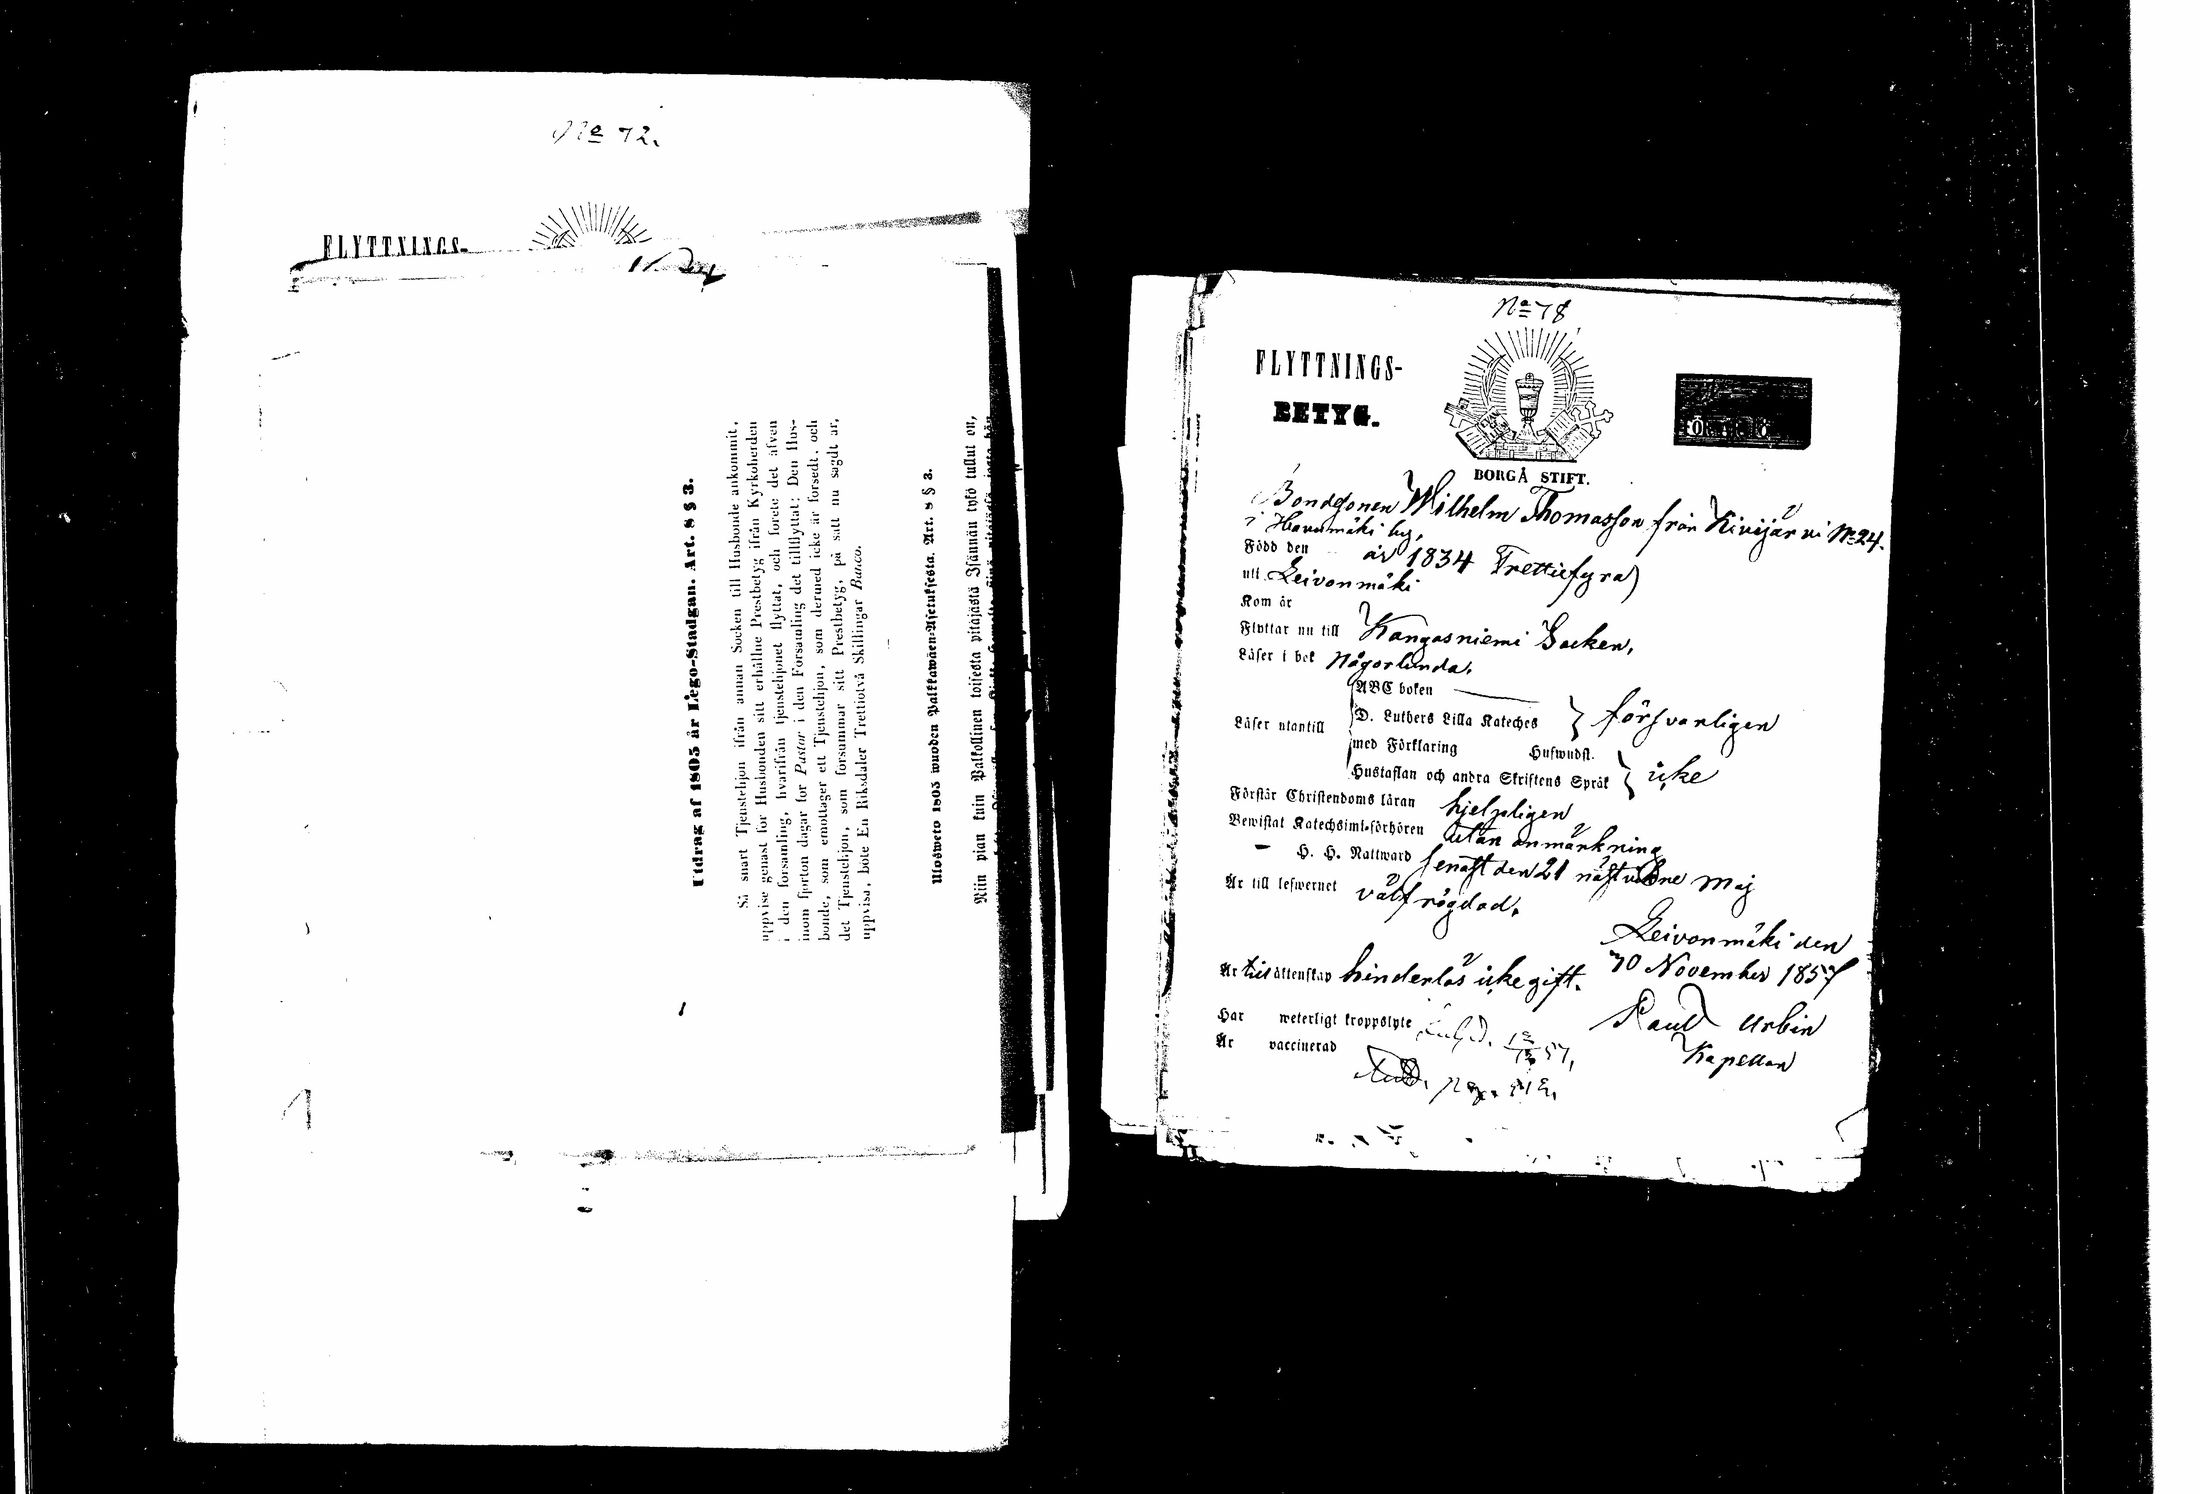 No 72.
FLYTTNINGS-
Utdrag af 1805 år Lego-Stadgan. Art. 8 § 3.
Så snart Tjenstehjon ifrån annan Socken till Husbonde ankommit,
uppvise genast för Husbonden sitt erhållne Prestbetyg ifrån Kyrkoherden
i den församling, hvarifrån tjenstehjonet flyttat, och förete det äfven
inom fjorton dagar för Pastor i den Församling det tillflyttat: Den Hus-
bonde, som emottager ett Tjenstehjon, som dermed icke är försedt, och
det Tjenstehjon, som försummar sitt Prestbetyg, på sätt nu sagdt är,
uppvisa, böte En Riksdaler Trettiotvå Skillingar Banco.
Ulosweto 1805 wuoden Palkkawäen-Asetuksesta. Art. 8 § 3.
Niin pian kuin Palkollinen toisesta pitäjästä Isännän tykö tullut on,
No 78
FLYTTNINGS-
BETYG.
BORGÅ STIFT.
Bondsonen Wilhelm Thomasson från Kivijärvi No 24.
i Havumäki by,
Född den år 1834 Trettiofyra)
uti Leivonmäki
Kom år
Flyttar nu till Kangasniemi Socken,
Läser i bok någorlunda.
ABC boken
Läser utantill D. Luthers Lilla Kateches försvarligen
med Förklaring Hufwudst.
Hustaflan och andra Skriftens Språk icke
Förstår Christendoms läran hjelpligen
Bewistat Katechsimi-förhören utan anmärkning
— H. H. Nattward senast den 21 nästvikne Maj
Är till lefwernet välfrägdad.
Leivonmäki den
Är till ättenskap hinderlös icke gift. 30 November 1857
Har weterligt kroppslyte Paul Urbin
Är vaccinerad Kapellan